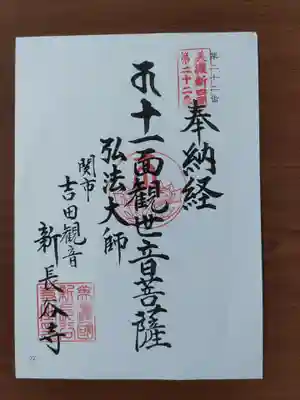 第二十二番
美濃新四国
第二十二番
奉納経
十一面観世音菩薩
弘法大師
関市
吉田観音
新長谷寺